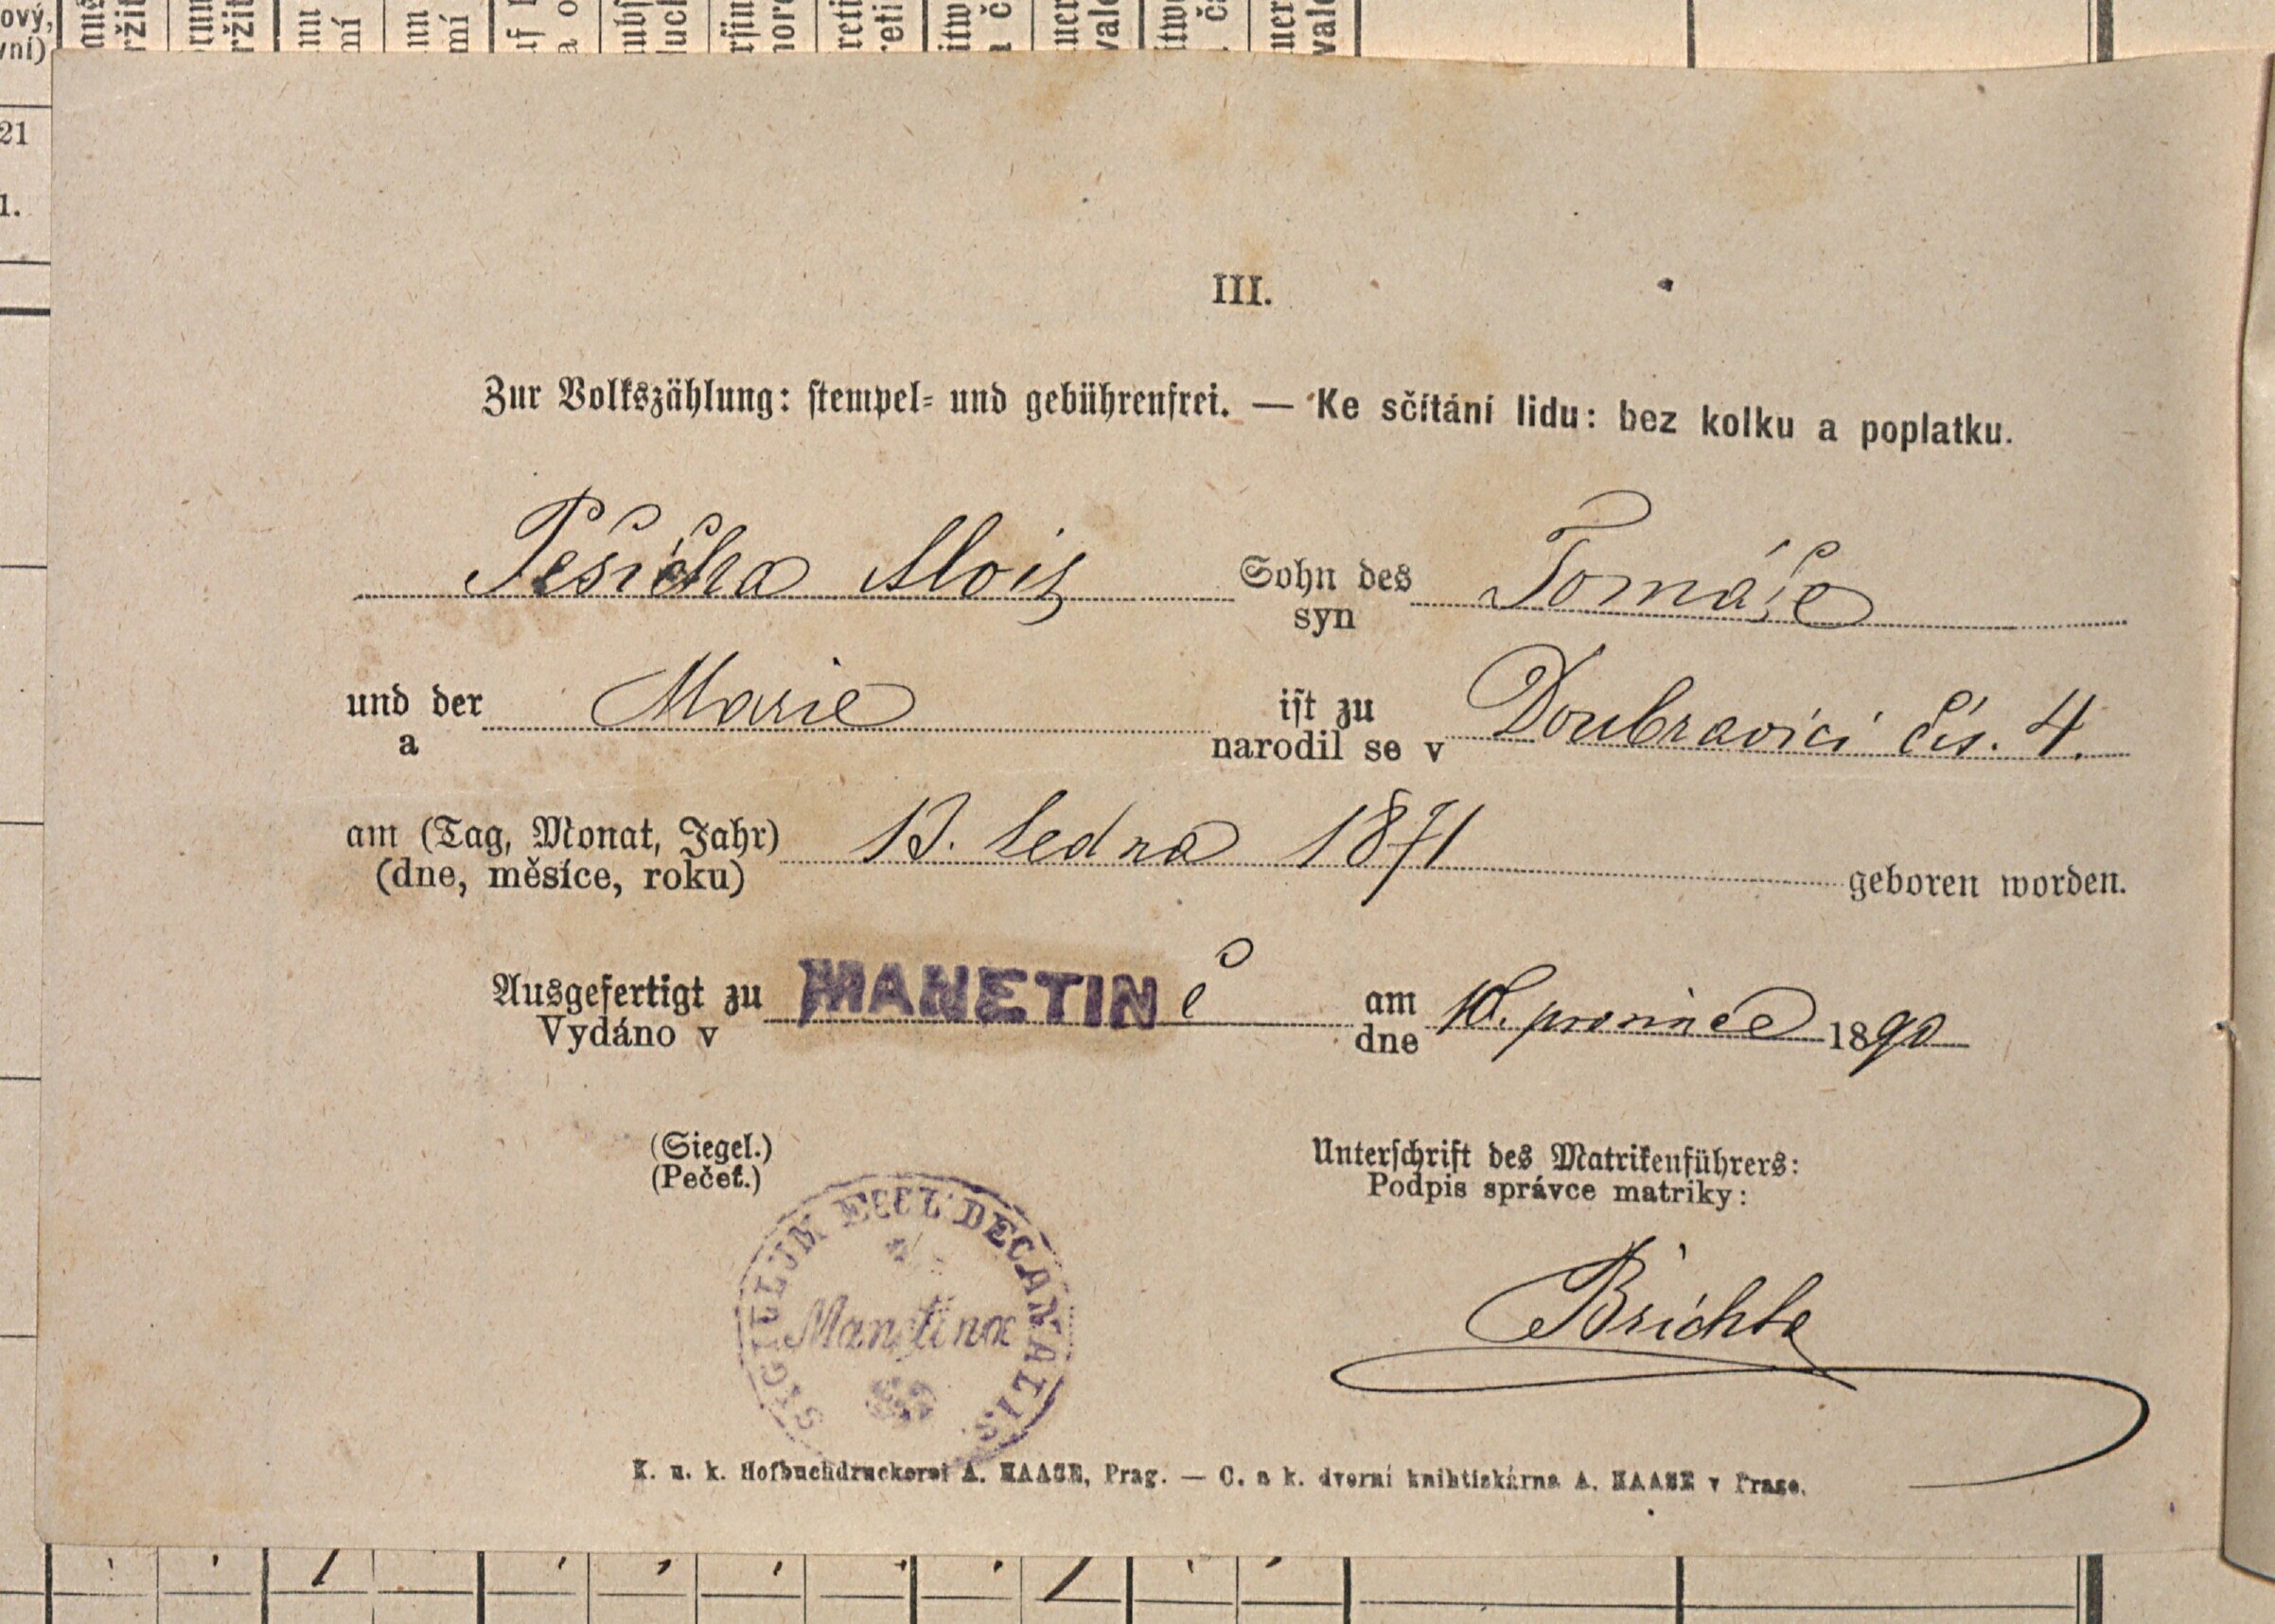 III.
Zur Volkszählung: stempel- und gebührenfrei. — Ke sčítání lidu: bez kolku a poplatku.
Pešička Alois Sohn des Tomáše
syn
und der Marie ist zu Doubravici čís. 4.
a narodil se v
am (Tag, Monat, Jahr) 13. ledna 1871 geboren worden.
(dne, měsíce, roku)
Ausgefertigt zu MANETINě am 10. prosince 1890
Vydáno v dne
(Siegel.) Unterschrift des Matrikenführers:
(Pečeť.) Podpis správce matriky:
SIGILLUM ECCL DECANALIS
Manetinae
Brichta
K. u. k. Hofbuchdruckerei A. HAASE, Prag. — C. a k. dvorní knihtiskárna A. HAASE v Praze.
21
1.